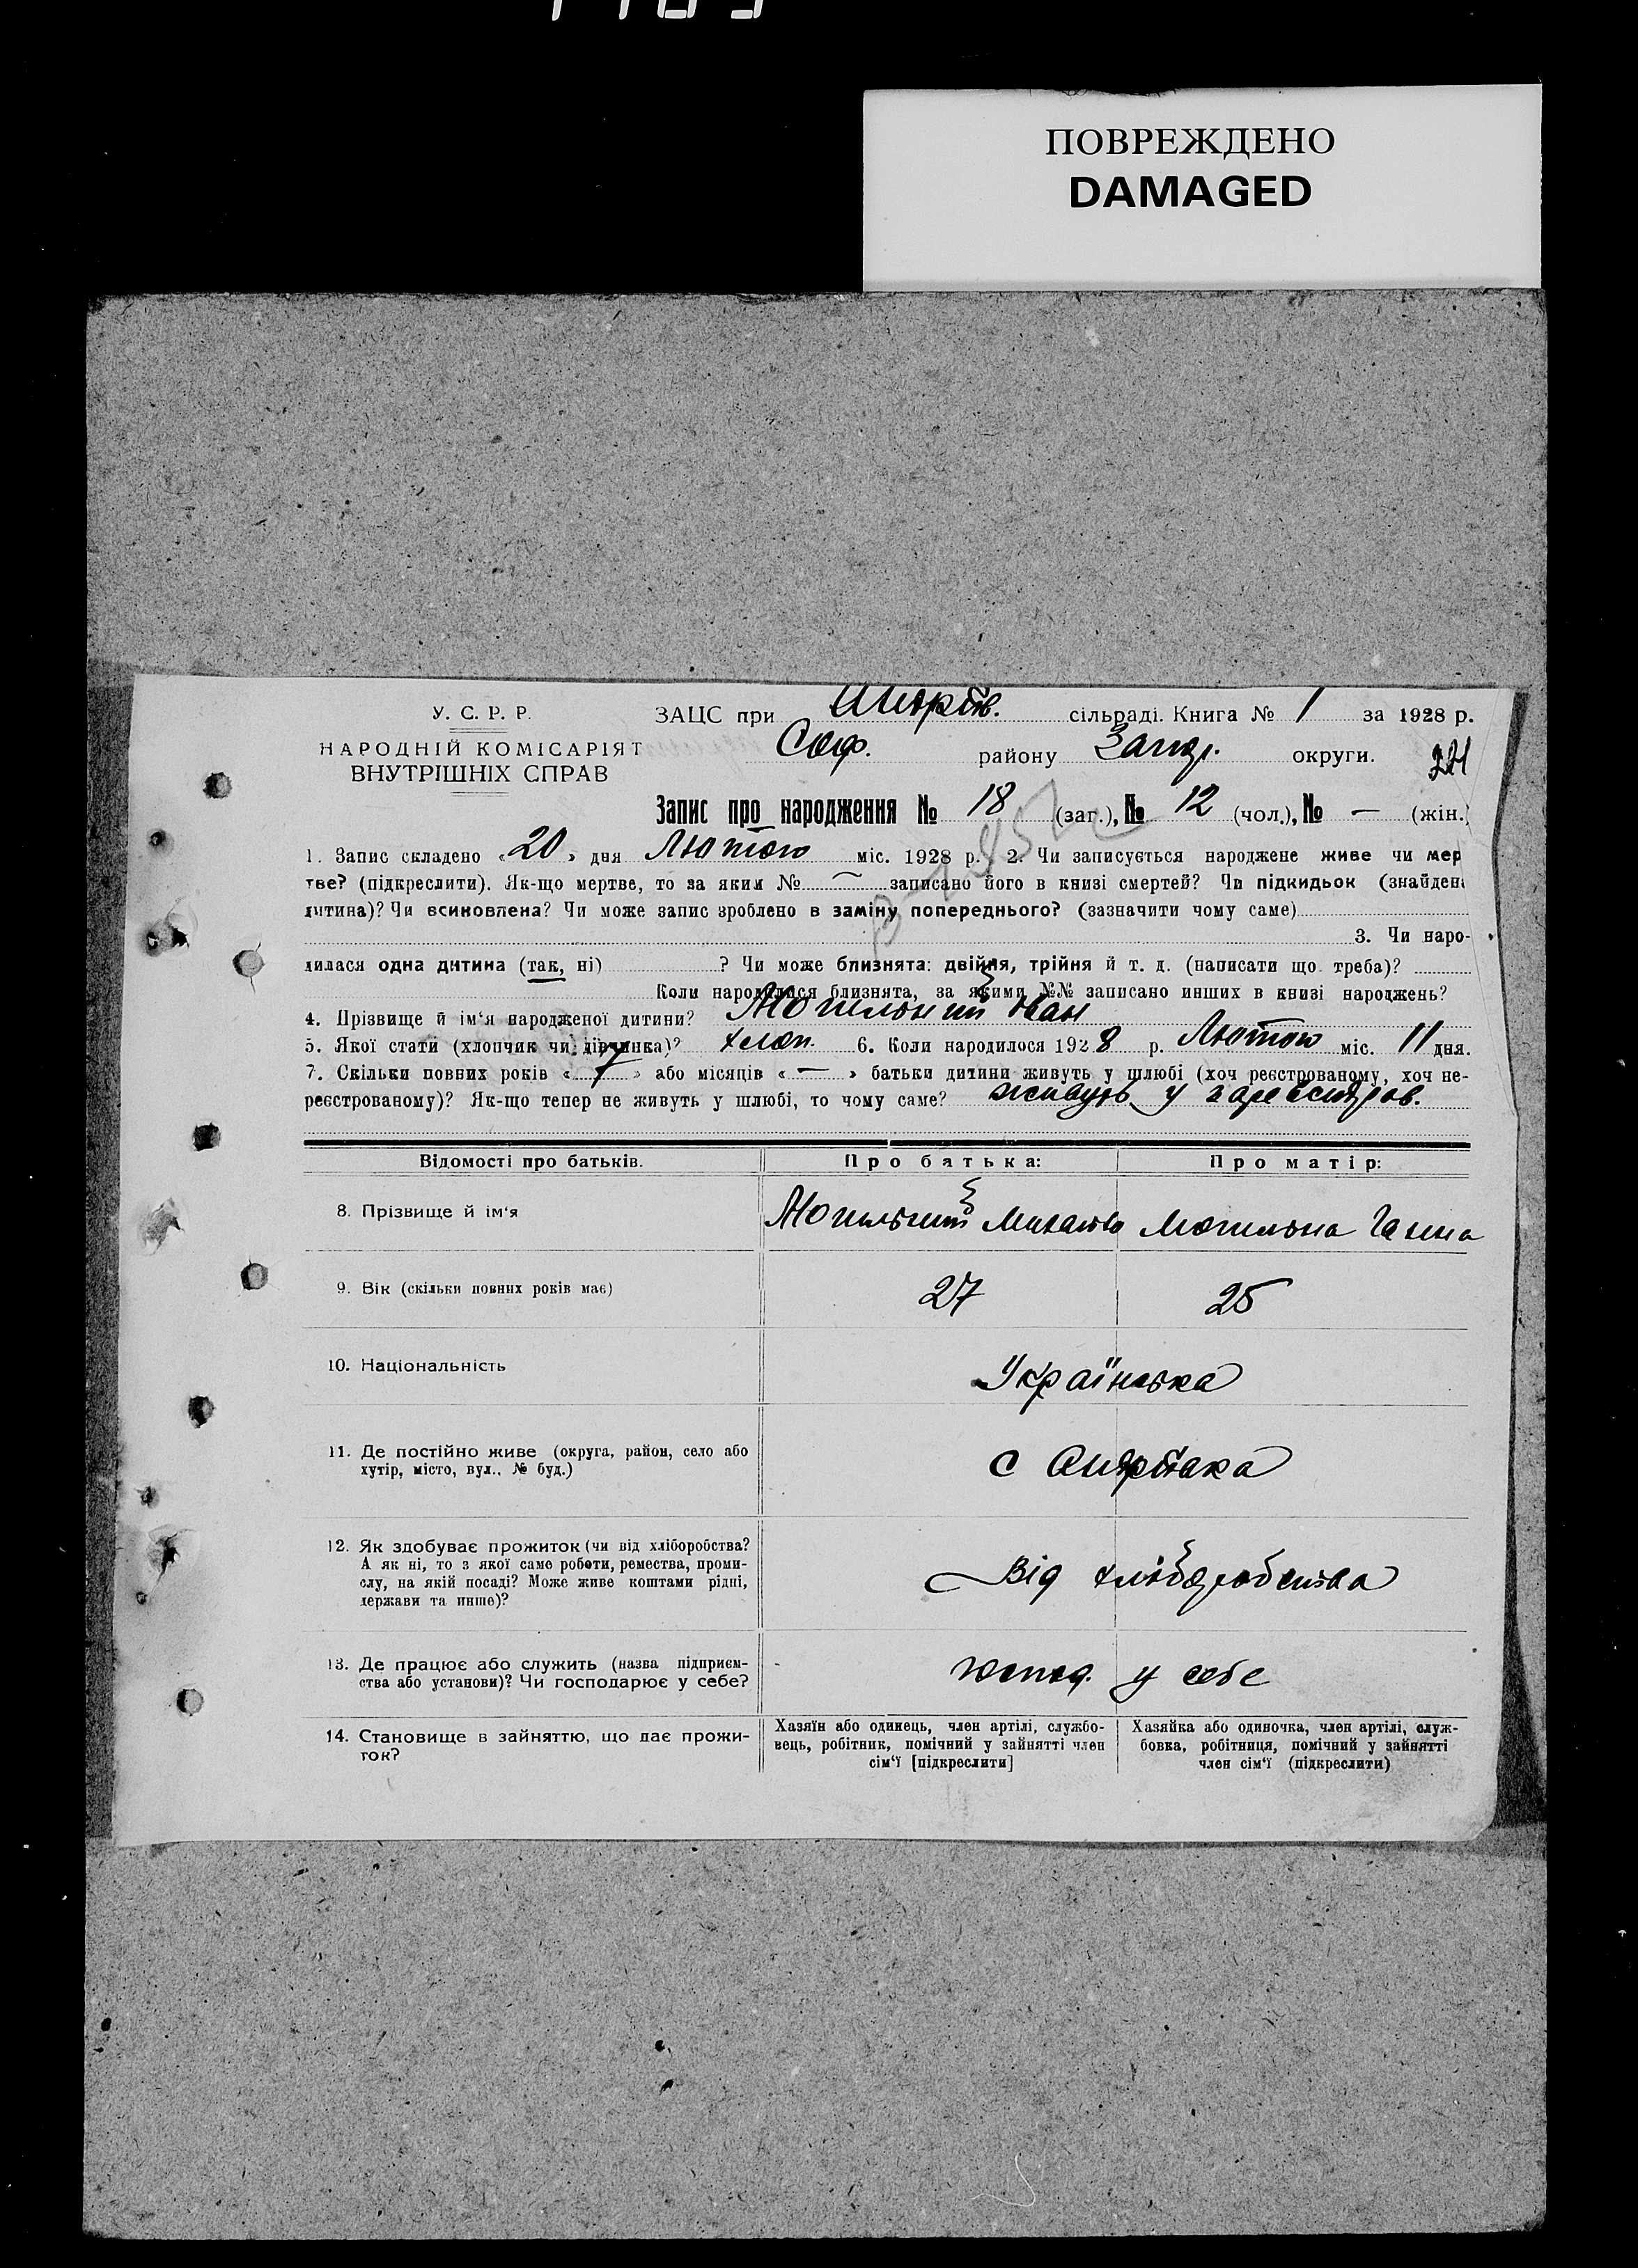 ПОВРЕЖДЕНО
DAMAGED
У. С. Р. Р.
НАРОДНІЙ КОМІСАРІЯТ
ВНУТРІШНІХ СПРАВ
ЗАЦС при сільраді. Книга № 1 за 1928 р.
Соф. району Запор. округи.
Запис про народження № 18 (заг.), № 12 (чол.), № — (жін.)
1. Запис складено «20» дня Лютого міс. 1928 р. 2. Чи записується народжене живе чи мер
тве? (підкреслити). Як-що мертве, то за яким № — записано його в книзі смертей? Чи підкидьок (знайдена
дитина)? Чи всиновлена? Чи може запис зроблено в заміну попереднього? (зазначити чому саме)
3. Чи наро-
дилася одна дитина (так, ні) ? Чи може близнята: двійня, трійня й т. д. (написати що треба)?
Коли народилися близнята, за якими №№ записано инших в книзі народжень?
4. Прізвище й ім‘я народженої дитини? Могильний Іван
5. Якої стати (хлопчик чи дівчинка)? хлоп. 6. Коли народилося 1928 р. Лютого міс. 11 дня.
7. Скільки повних років «7» або місяців «—» батьки дитини живуть у шлюбі (хоч реєстрованому, хоч не-
реєстрованому)? Як-що тепер не живуть у шлюбі, то чому саме? живуть у зареєстров.
Відомості про батьків. Про батька: Про матір:
8. Прізвище й ім‘я Могильний Михайло Могильна Ганна
9. Вік (скільки повних років має) 27 25
10. Національність Українська
11. Де постійно живе (округа, район, село або
хутір, місто, вул., № буд.) с
12. Як здобуває прожиток (чи від хліборобства?
А як ні, то з якої саме роботи, ремества, проми-
слу, на якій посаді? Може живе коштами рідні,
держави та инше)? Від хліборобства
13. Де працює або служить (назва підприєм-
ства або установи)? Чи господарює у себе? господ. у себе
14. Становище в зайняттю, що дає прожи-
ток?
Хазяїн або одинець, член артілі, службо-
вець, робітник, помічний у зайнятті член
сім‘ї [підкреслити]
Хазяйка або одиночка, член артілі, служ-
бовка, робітниця, помічний у зайнятті
член сім‘ї (підкреслити)